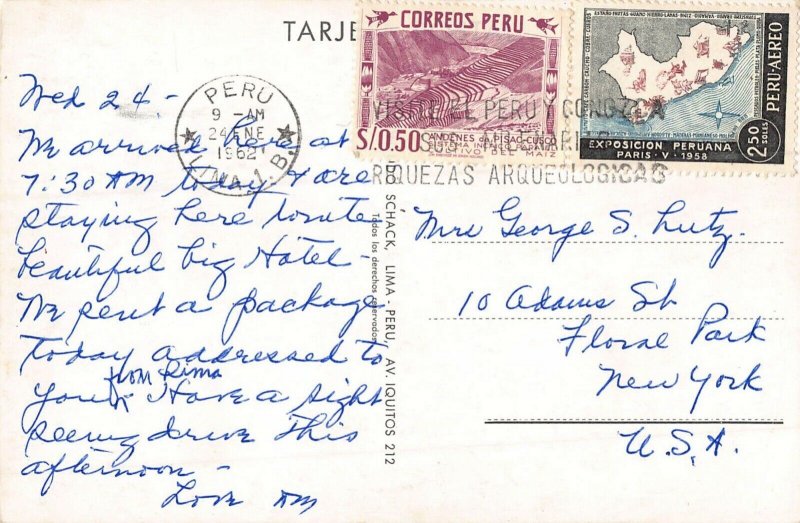 TARJE
CORREOS PERU
S/.0.50
ANDENES DE PISAC-CUSCO
MAIZ
PERU-AEREO
2.50 SOLES
EXPOSICION PERUANA
PARIS - V - 1958
PERU
9 - AM
24 ENE
1962
LIMA.1.B
VISITE EL PERU Y CONOZCA
SUS MILENARIAS
RIQUEZAS ARQUEOLOGICAS
Wed 24 -
We arrived here at
7:30 AM today & are
staying here tonite
beautiful big Hotel -
We sent a package
today addressed to
from Lima
you. Have a sight
seeing drive this
afternoon -
Love AM
SCHACK, LIMA - PERU, AV. IQUITOS 212
Todos los derechos reservados
Mrs George S. Lutz.
10 Adams St
Floral Park
New York
U.S.A.